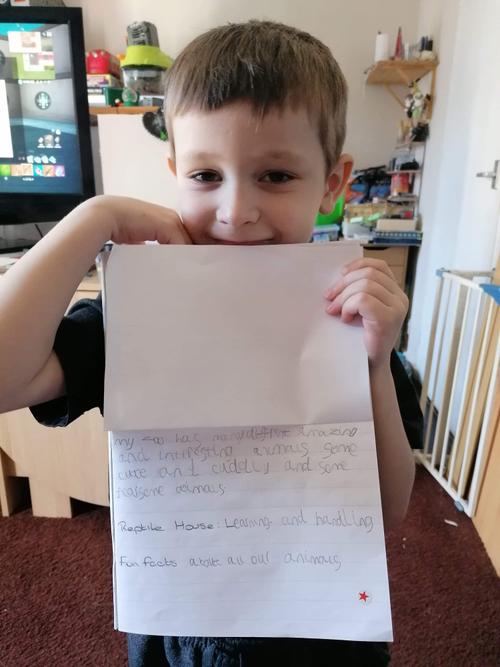 my zoo has many different amazing
and intresting animals some
cute and cuddly and some
animals.
Reptile House: Learning and handling
fun facts about all our animals